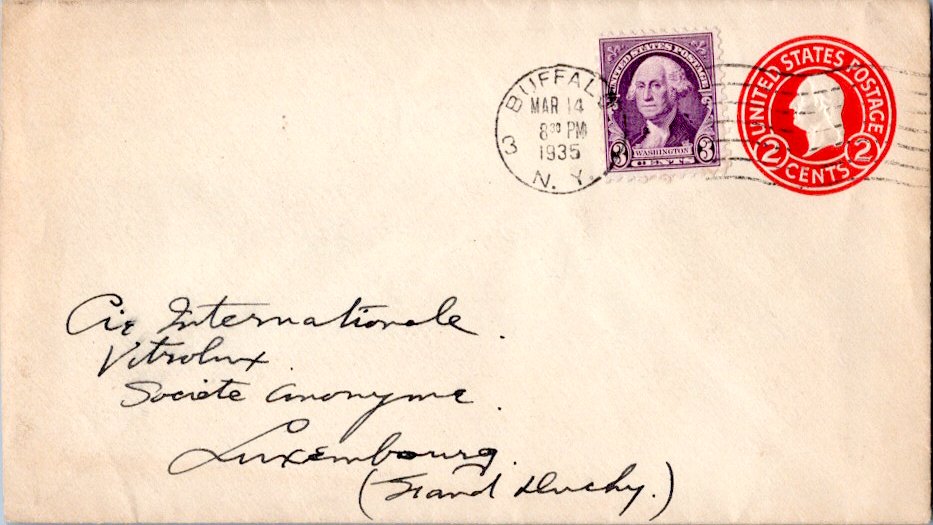 BUFFALO
MAR 14
8 30 PM
1935
N. Y.
3
UNITED STATES POSTAGE
WASHINGTON
3 CENTS 3
UNITED STATES POSTAGE
2 CENTS 2
Cie Internationale.
Vitrolux.
Societe Anonyme.
Luxembourg.
(Grand Duchy.)